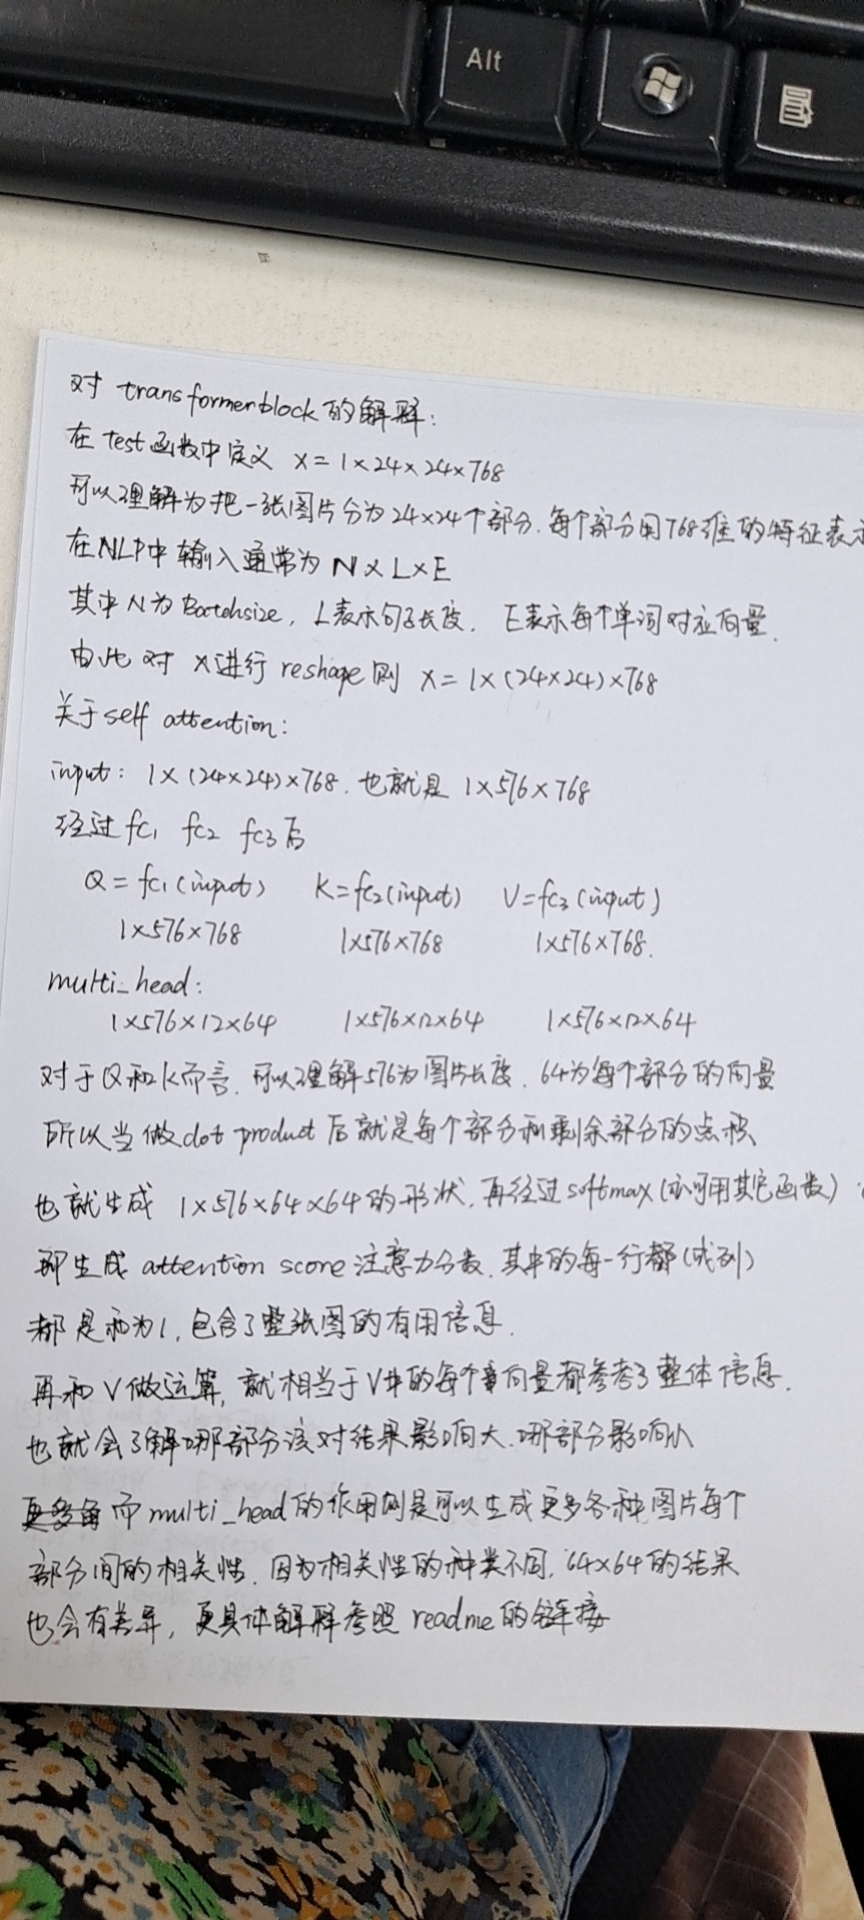 Alt
对 transformerblock 的解释:
在 test 函数中定义 X = 1×24×24×768
可以理解为把一张图片分为 24×24个部分. 每个部分用768维的特征表示
在NLP中 输入通常为 N×L×E
其中 N为 Batchsize, L表示句子长度, E表示每个单词对应向量.
由此 对 X进行 reshape 则 X = 1×(24×24)×768
关于self attention:
input: 1×(24×24)×768. 也就是 1×576×768
经过 fc1 fc2 fc3后
Q = fc1(input) K=fc2(input) V=fc3(input)
1×576×768 1×576×768 1×576×768.
multi_head:
1×576×12×64 1×576×12×64 1×576×12×64
对于Q和K而言, 可以理解576为图片长度, 64为每个部分的向量
所以当做dot product后就是每个部分和剩余部分的点积
也就生成 1×576×64×64的形状, 再经过softmax(亦可用其它函数)
即生成 attention score 注意力分数, 其中的每一行都(或列)
都是和为1, 包含了整张图的有用信息.
再和V做运算, 就相当于V中的每个向量都参考了整体信息.
也就会了解哪部分该对结果影响大, 哪部分影响小
而multi_head的作用则是可以生成更多各种图片每个
部分间的相关性. 因为相关性的种类不同, 64×64的结果
也会有差异, 更具体解释参照 readme的链接